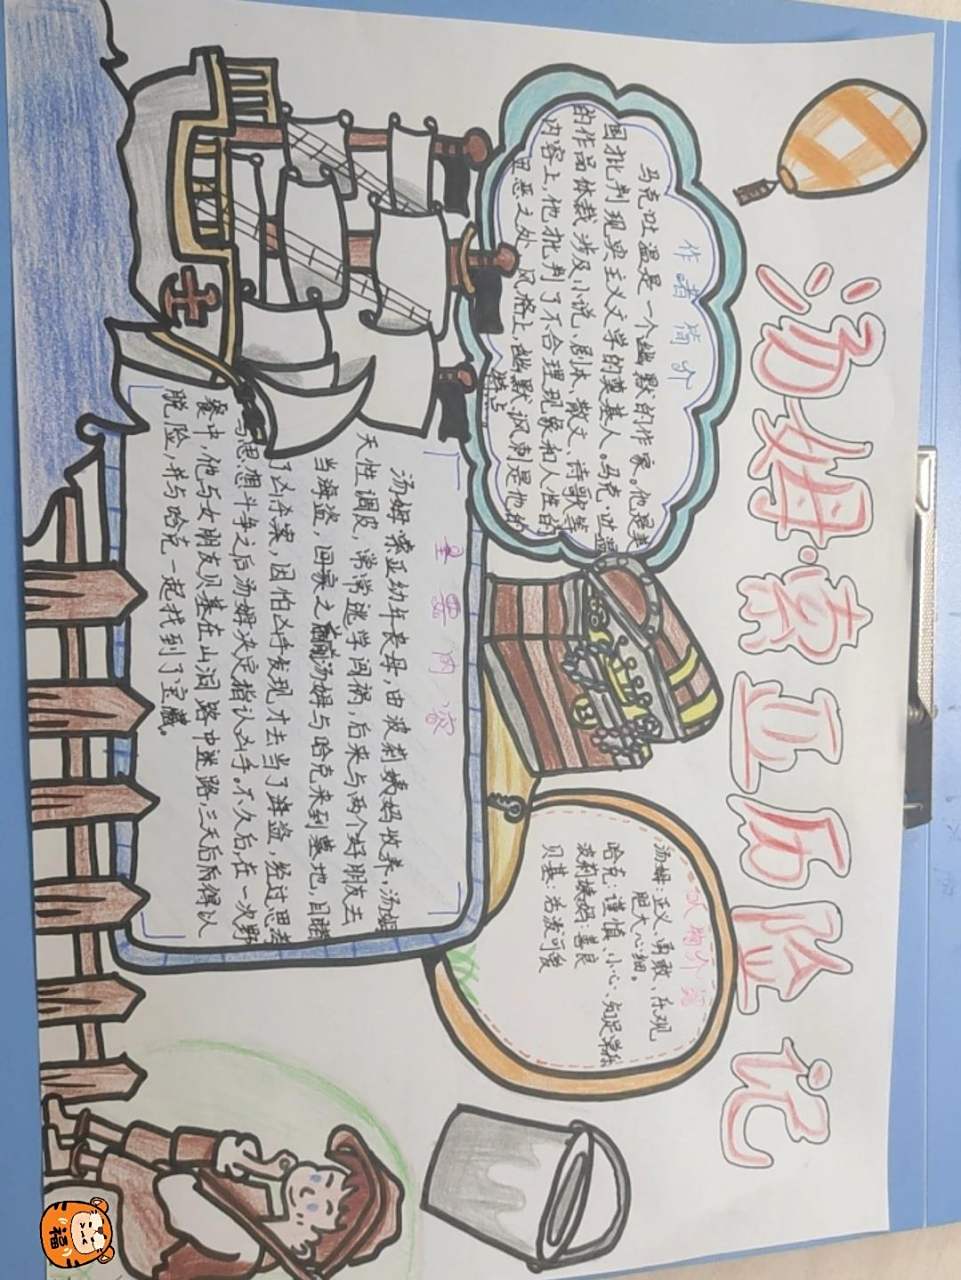 汤姆·索亚历险记
作者简介
马克吐温是一个幽默的作家。他是美
国批判现实主义文学的奠基人。马克·吐温
的作品体裁涉及小说、剧本、散文、诗歌等
内容上,他批判了不合理现象和人性的
丑恶之处,风格上,幽默讽刺是他的
特点
人物介绍
汤姆:正义、勇敢、乐观
胆大心细。
哈克:谨慎、小心、知足常乐
波莉姨妈:善良
贝基:活泼可爱
主要内容
汤姆索亚幼年丧母,由波莉姨妈收养,汤姆
天性调皮,常常逃学闯祸,后来与两个好朋友去
当海盗,回家之后汤姆与哈克来到墓地,目睹
了凶杀案,因怕凶手发现才去当了海盗,经过思想
思想斗争之后汤姆决定指认凶手。不久后在一次野
餐中,他与女朋友贝基在山洞路中迷路,三天后得以
脱险,并与哈克一起找到了宝藏。
福